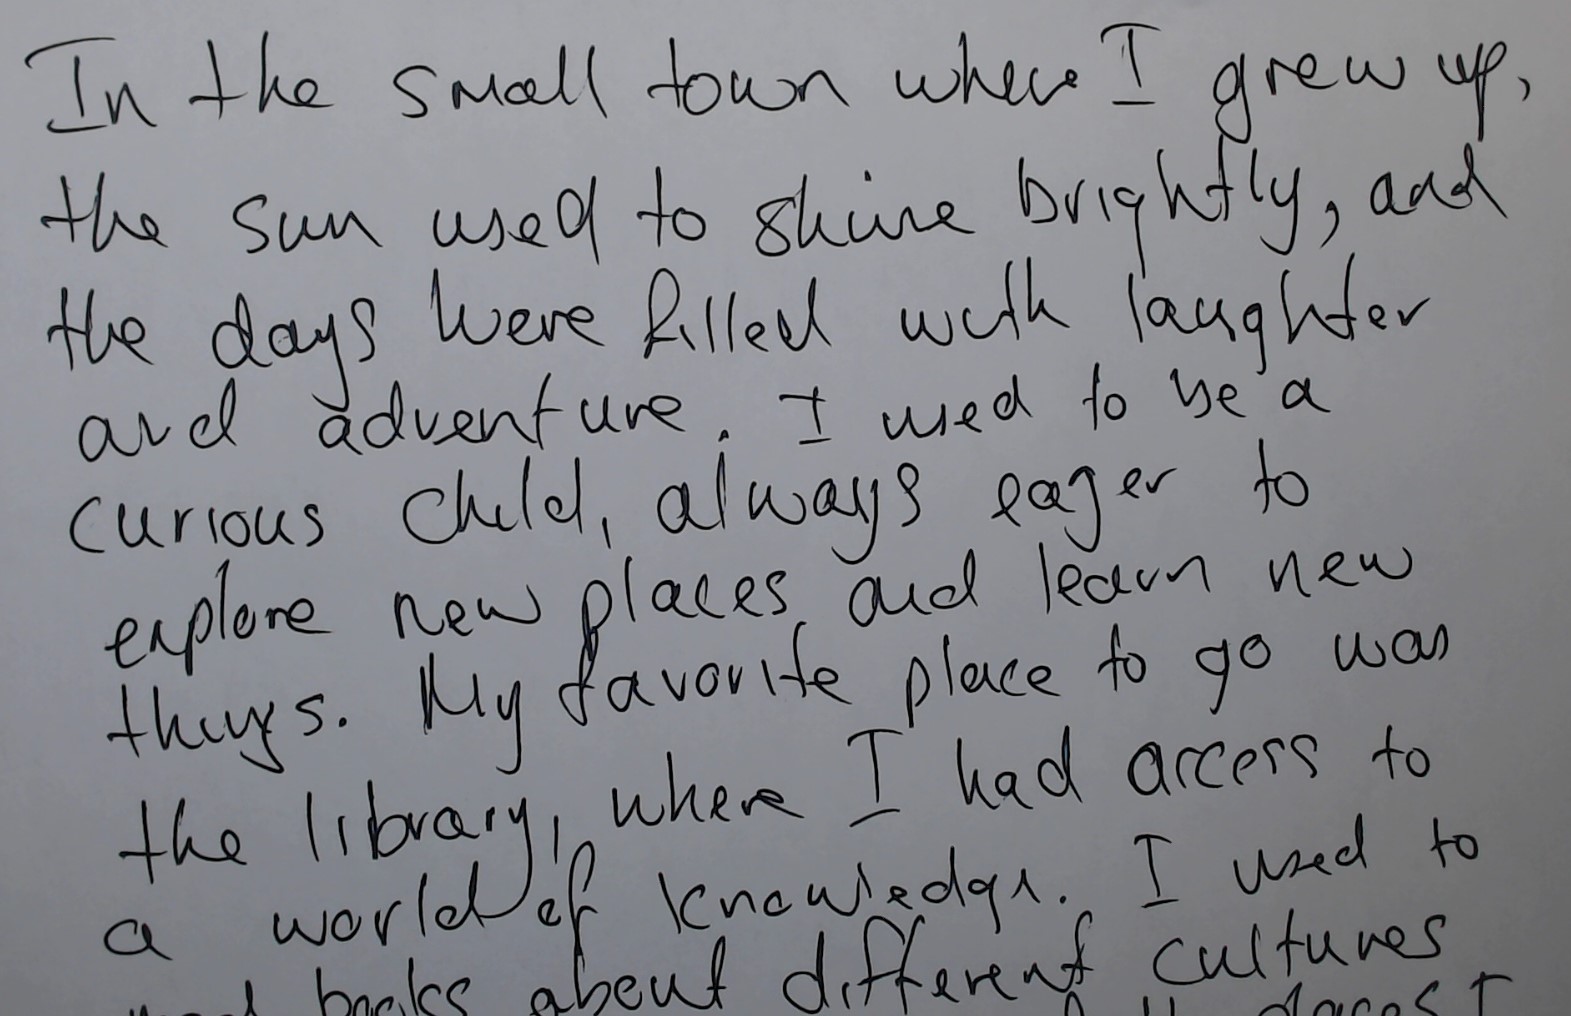 In the small town where I grew up,
the sun used to shine brightly, and
the days were filled with laughter
and adventure. I used to be a
curious child, always eager to
explore new places and learn new
things. My favorite place to go was
the library, where I had access to
a world of knowledge. I used to
read books about different cultures
places I